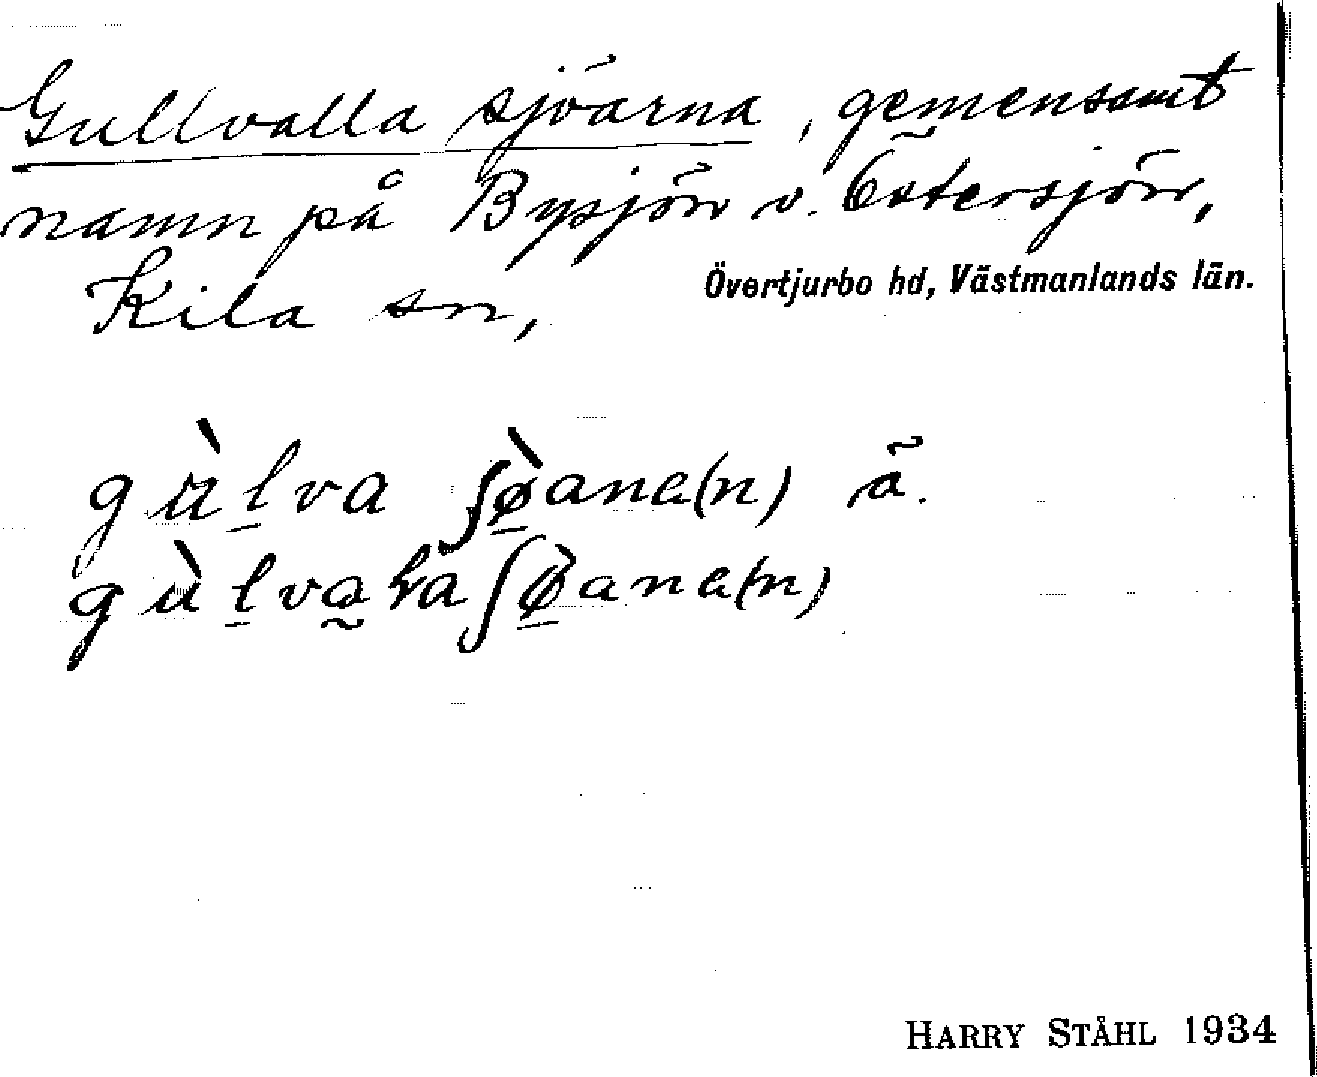 Gullvalla sjöarna, gemensamt
namn på Bysjön o. Östersjön,
Kila sn,
Övertjurbo hd, Västmanlands län.
gù̀lva ʃø̀ana(n) ä.
gùlvahaʃø̀ana(n)
HARRY STÅHL 1934